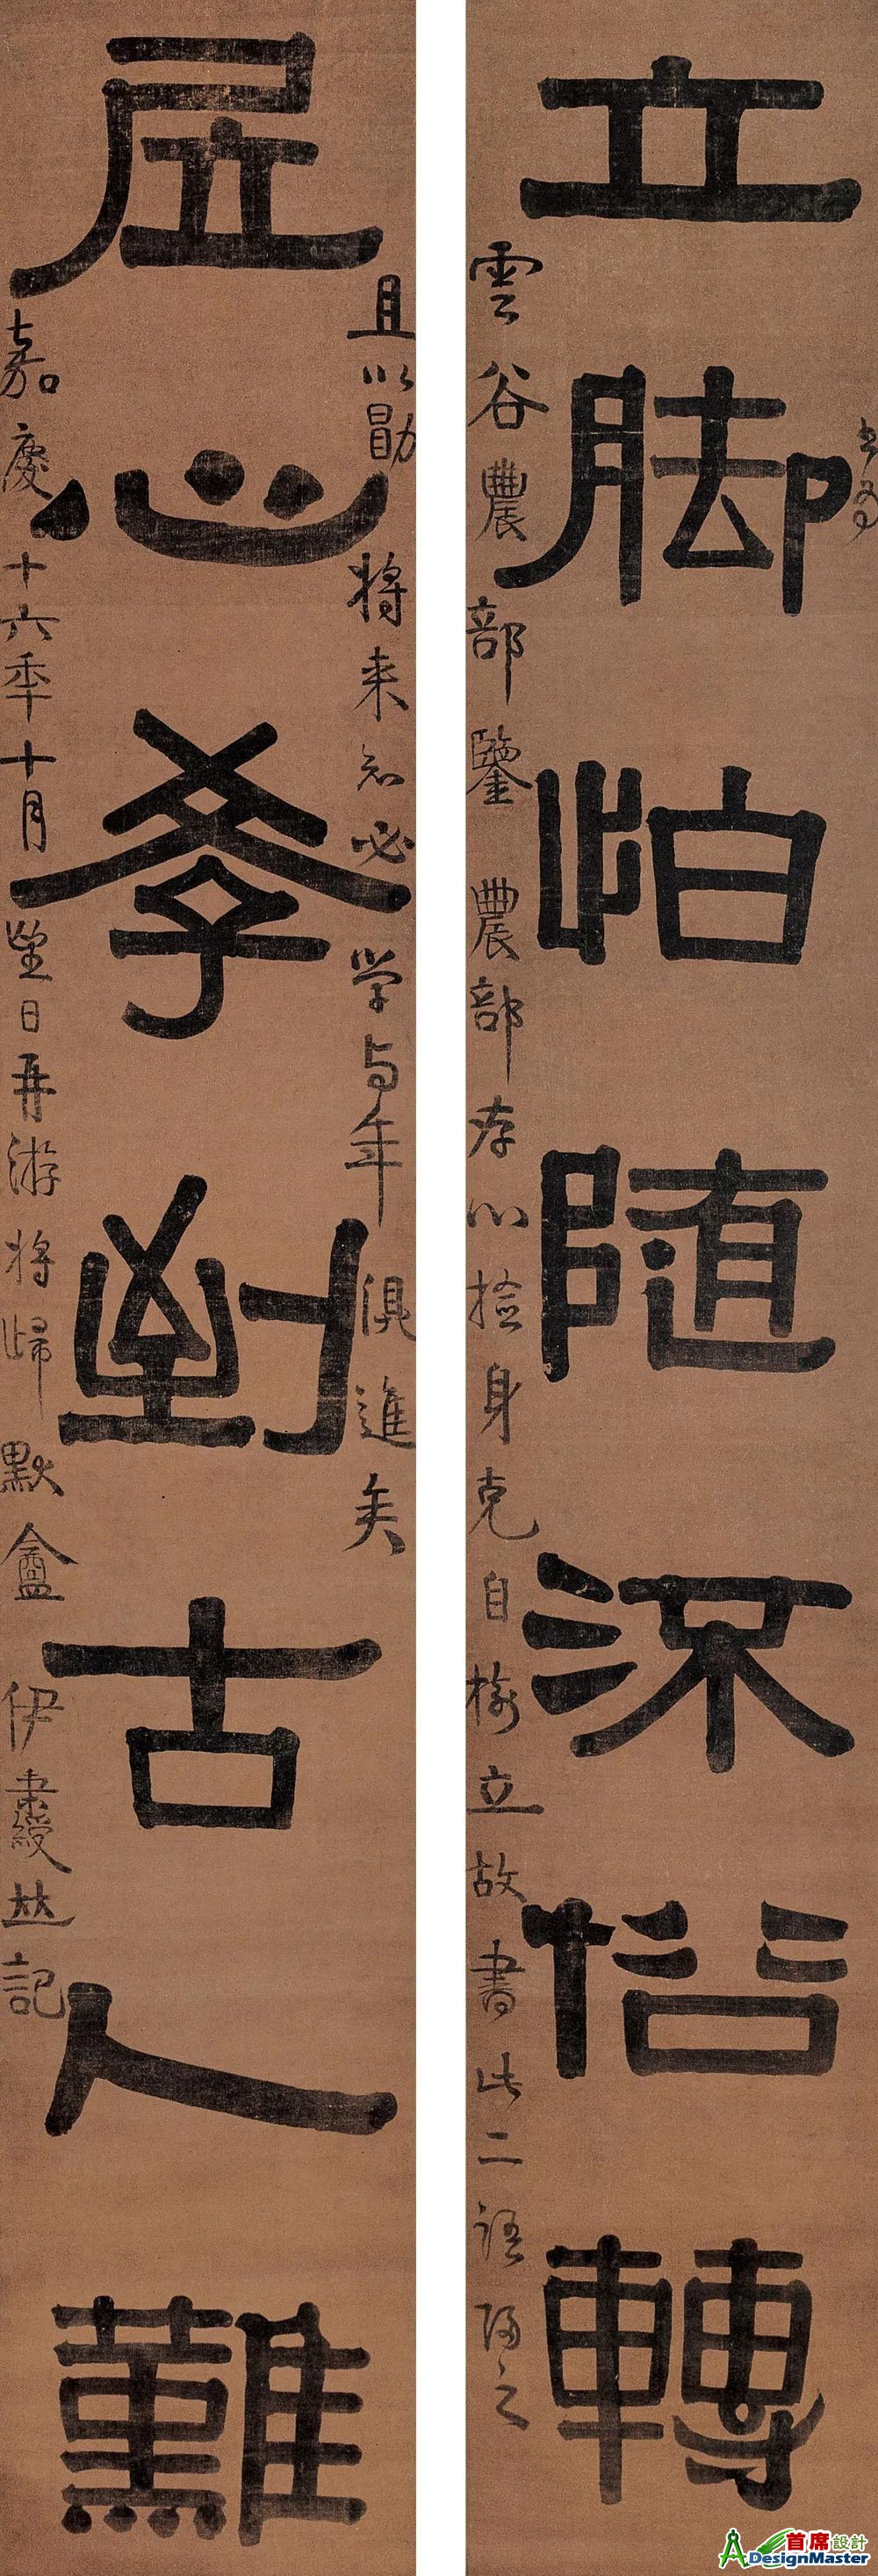 立脚怕随流俗轉
書為
雲谷農部鑒農部存心撿身克自樹立故書此二語歸之
居心學到古人難
且以勖將来知必学与年俱進矣
嘉慶十六季十月望日再游將歸默盦伊秉綬並記
首席設計
DesignMaster